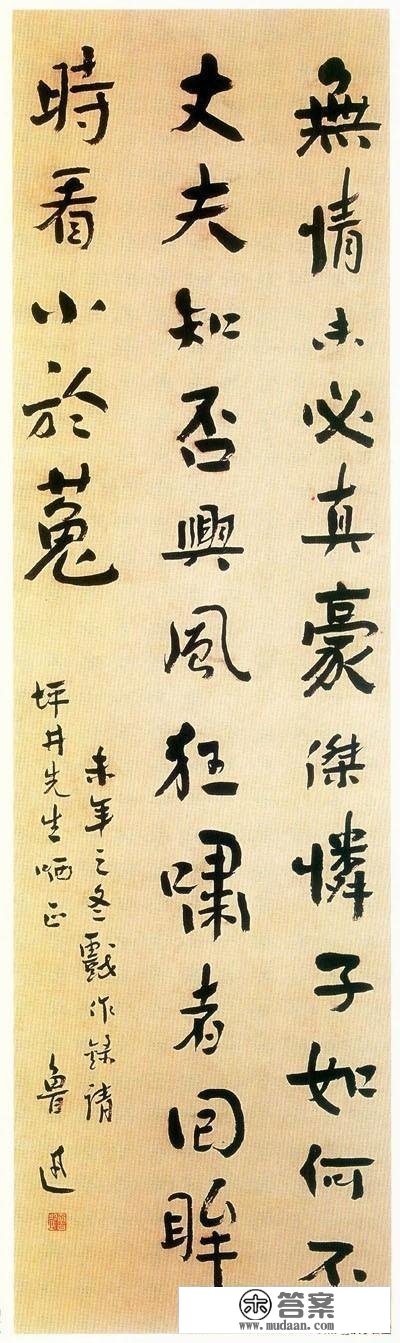 無情未必真豪傑憐子如何不
丈夫知否興風狂嘯者回眸
時看小於菟
未年之冬戲作錄請
坪井先生哂正
魯迅
答案
www.mudaan.com